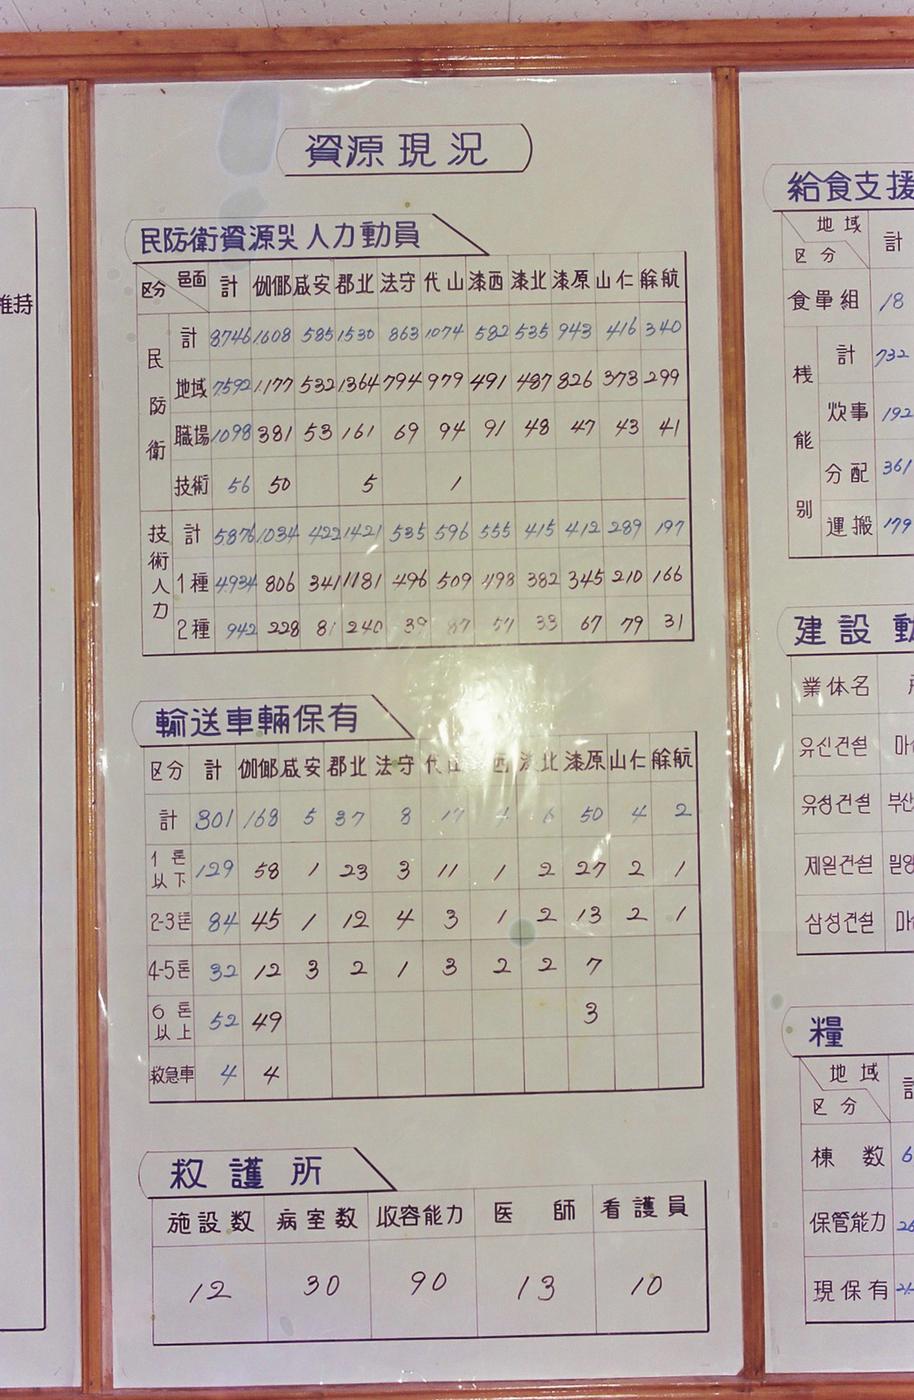 資源現況
民防衛資源및 人力動員
区分 邑面 計 伽倻 咸安 郡北 法守 代山 漆西 漆北 漆原 山仁 艅航
民防衛
計 8,746 1,608 585 1530 863 1,074 582 535 943 416 340
地域 7,592 1,177 532 1364 794 979 491 487 826 373 299
職場 1098 381 53 161 69 94 91 48 47 43 41
技術 56 50 5 1
技術人力
計 5876 1034 422 1421 535 596 555 415 412 289 197
1種 4,934 806 341 1181 496 509 498 382 345 210 166
2種 942 228 81 240 39 87 57 33 67 79 31
輸送車輛保有
区分 計 伽倻 咸安 郡北 法守 代山 西 漆北 漆原 山仁 艅航
計 301 168 5 37 8 17 6 50 4 2
1톤以下 129 58 1 23 3 11 1 2 27 2 1
2-3톤 84 45 1 12 4 3 1 2 13 2 1
4-5톤 32 12 3 2 1 3 2 2 7
6톤以上 52 49 3
救急車 4 4
救護所
施設数 病室数 収容能力 医師 看護員
12 30 90 13 10
維持
給食支援
地域 区分 計
食單組 18
栈能別
計 732
炊事 192
分配 361
運搬 179
建設 動
業体名
유신건설 마
유성건설 부산
제일건설 밀양
삼성건설 마
糧
地域 区分
棟数 6
保管能力
現保有